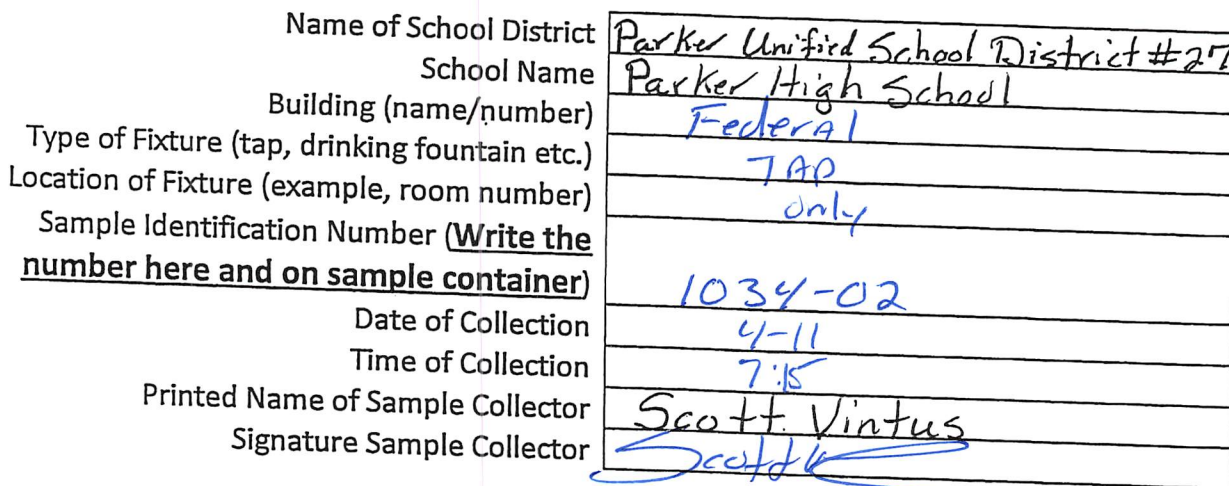 Name of School District Parker Unified School District #27
School Name Parker High School
Building (name/number) Federal
Type of Fixture (tap, drinking fountain etc.) TAP
Location of Fixture (example, room number) only
Sample Identification Number (Write the
number here and on sample container) 1034-02
Date of Collection 4-11
Time of Collection 7:15
Printed Name of Sample Collector Scott Vintus
Signature Sample Collector Scott